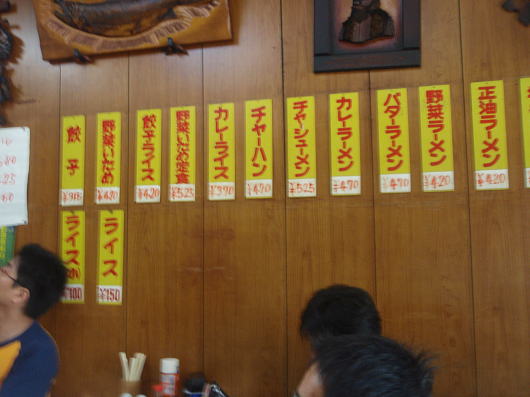 正油ラーメン
¥420
野菜ラーメン
¥420
バターラーメン
¥470
カレーラーメン
¥470
チャーシューメン
¥525
チャーハン
¥470
カレーライス
¥390
野菜いため定食
¥525
餃子ライス
¥420
野菜いため
餃子
ライス
¥150
ライス小
¥100